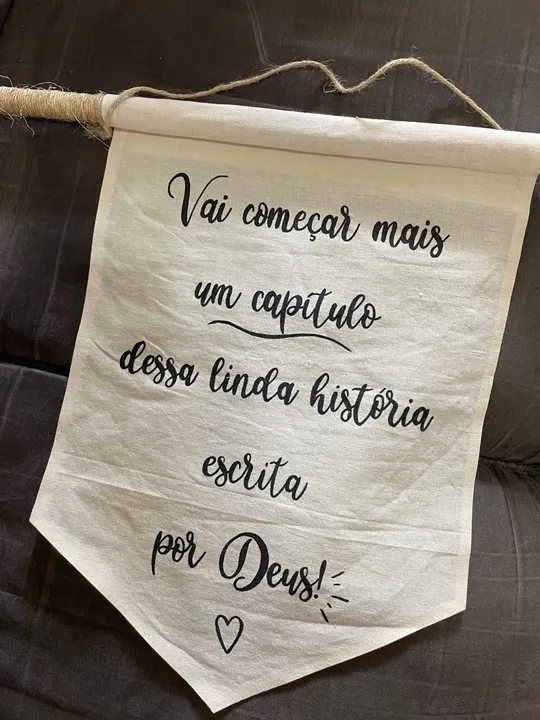 Vai começar mais
um capítulo
dessa linda história
escrita
por Deus!